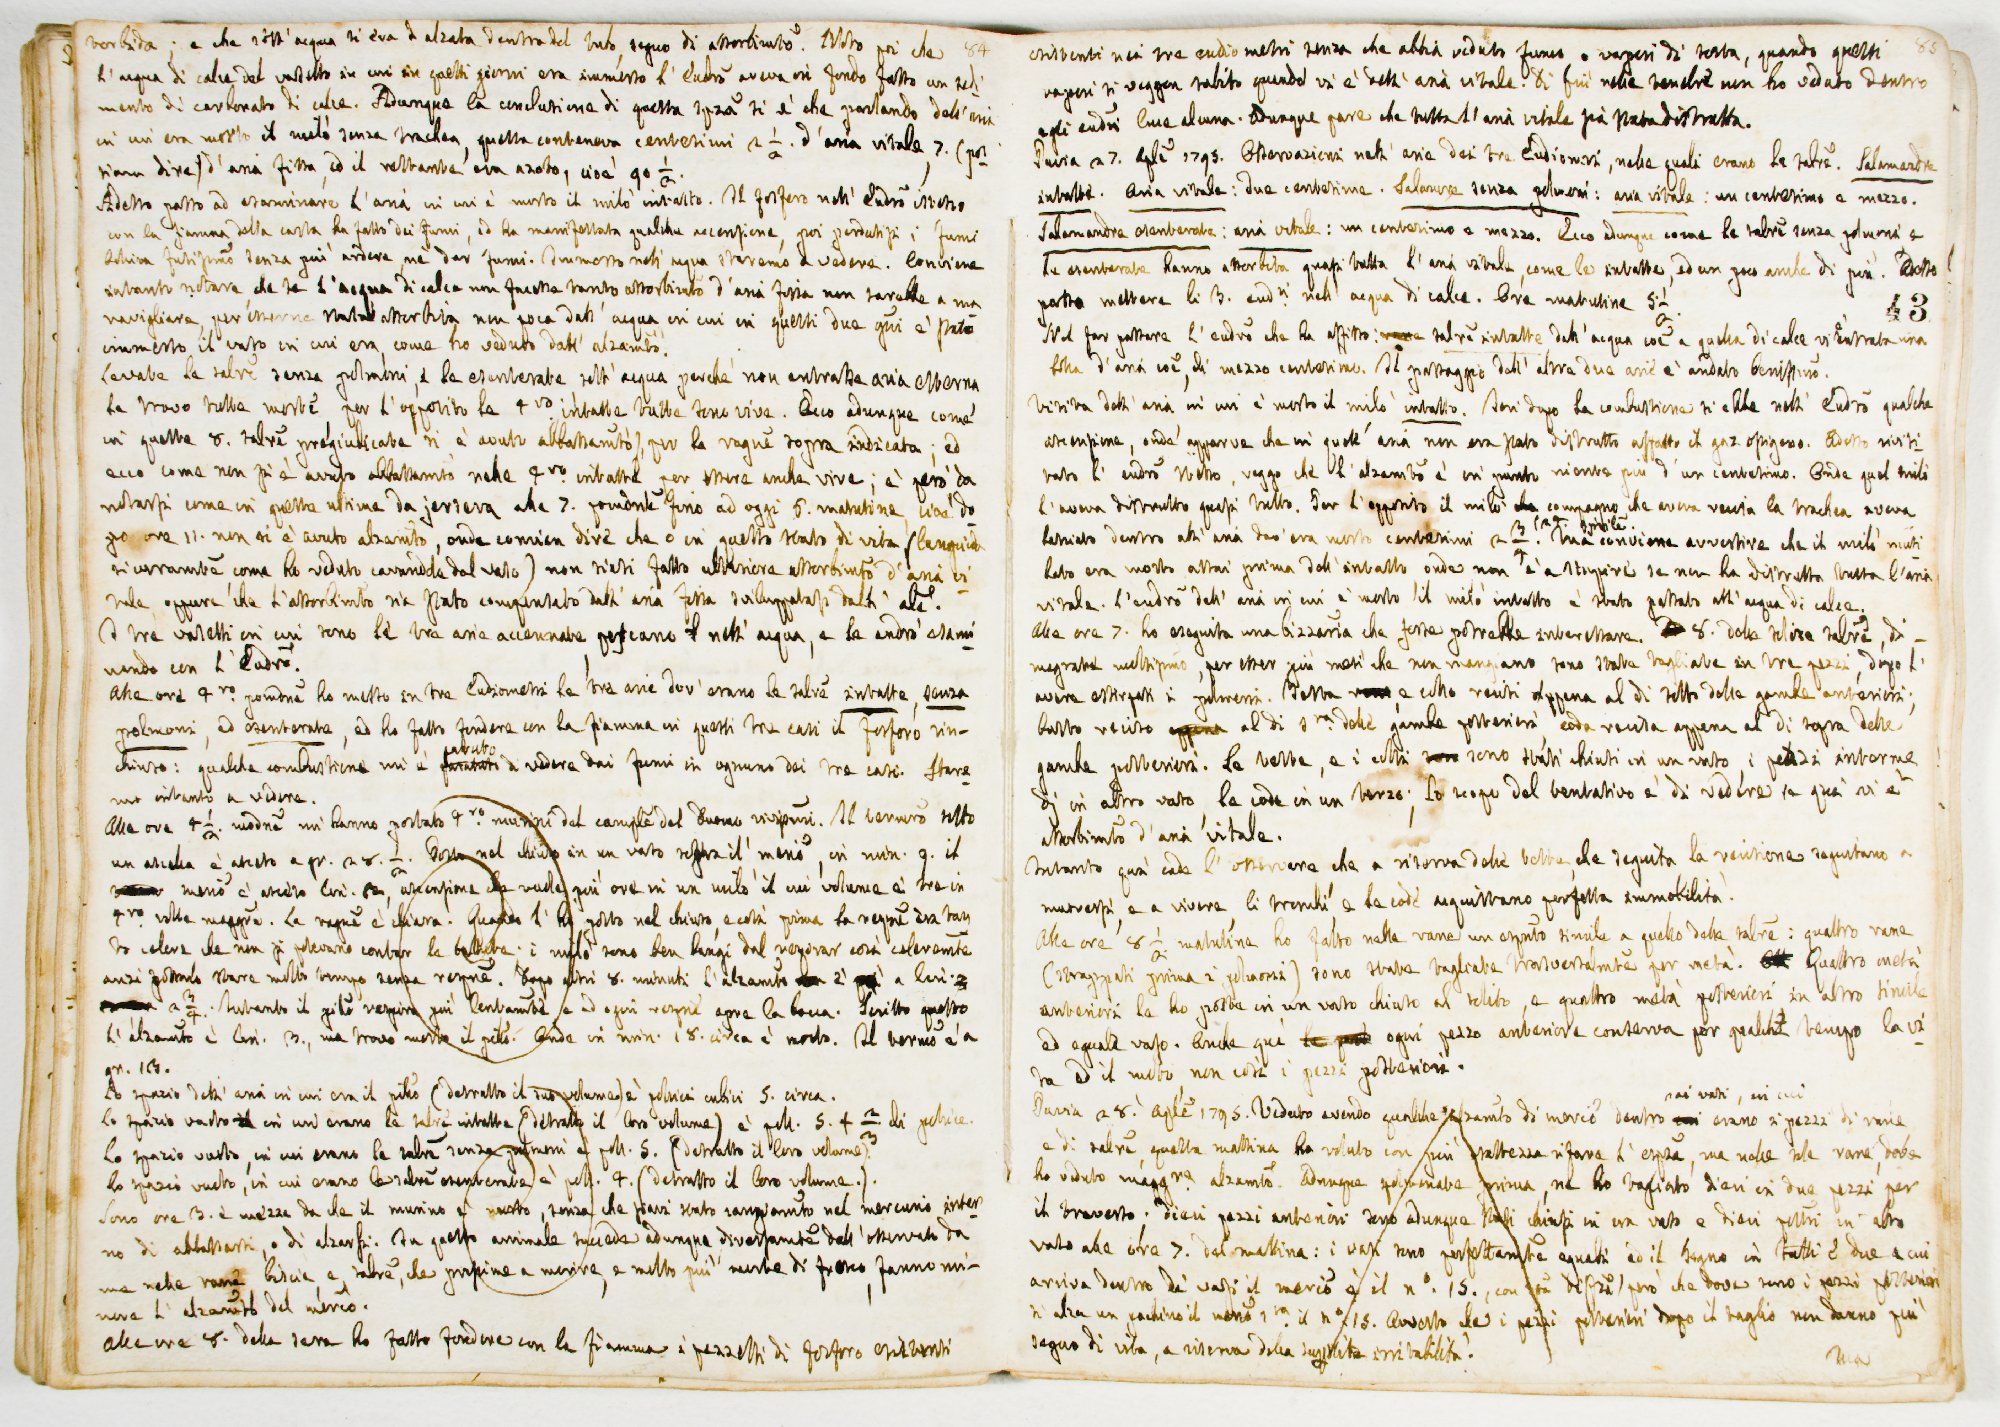 84
torbida; e che sott'acqua si era d alzata dentro del tubo, segno di assorbimto. Visto poi che
l'acqua di calce del vasetto in cui in questi giorni era immerso l'Eudro aveva nel fondo fatto un sedi
mento di carbonato di calce. Adunque la conclusione di questa spza si è che parlando dell'aria
in cui era morto il milò senza trachea, questa conteneva centesimi 2 1/2. d'aria vitale, 7. (pos
siam dire) d'aria fissa, ed il restante era azoto, cioè 90 1/2.
Adesso passo ad esaminare l'aria in cui è morto il milò intatto. Il fosforo nell'Eudro istesso
con la fiamma della carta ha fatto dei fumi, ed ha manifestata qualche accensione, poi perdutisi i fumi
senza più ardere, ne dar fumi. Immerso nell'acqua staremo a vedere. Conviene
intanto notare che se l'acqua di calce non facesse tanto assorbimto d'aria fissa non sarebbe a ma
ravigliare, per esserne stata assorbita non poca dall'acqua in cui in questi due gni è stato
immerso il vaso in cui era, come ho veduto dall'alzamto.
Levate le salre senza polmoni, e le esenterate sott'acqua perché non entrasse aria esterna
le trovo tutte morte, per l'opposito le 4ro intatte tutte sono vive. Ecco adunque come
in queste 8. salre pregiudicate si è avuto abbassamto, per le ragni sopra indicate; ed
ecco come non si è avuto abbassamto nelle 4ro intatte per essere anche vive; è però da
notarsi come in queste ultime da jersera alle 7. pomdne fino ad oggi 5. matutine, cioè do
po ore 11. non si è avuto alzamto, onde convien dire che o in questo stato di vita (languida
sicurame come ho veduto cavandole dal vaso) non siasi fatto ulteriore assorbimto d'aria vi
tale oppure che l'assorbimto sia stato compensato dall'aria fissa sviluppatasi dalli ale.
I tre vasetti in cui sono le tre arie accennate, pescano nell'acqua, e le andrò esami
nando con l'Eudro.
Alle ore 4ro pomdne ho messo in tre Eudiometri le tre arie dov'erano le salre intatte, senza
polmoni, ed esenterate, ed ho fatto fondere con la fiamma in questi tre casi il fosforo rin-
chiuso: qualche combustione mi è paruto a vedere dai fumi in ognuno dei tre casi. Stare
mo intanto a vedere.
Alle ore 4 1/2. mi hanno portato 4ro del campile del Duomo. Il sotto
un ascella è asceso a gr. 28. 1/2. Posto nel chiuso in un vaso sopra il merio, in min. 9. il
merio è asceso lin. , ascensione che vuole più ore in un milò il cui volume è tre in
4ro volte maggre. La ragne è chiara. Quando l'ho posto nel chiuso, e così prima la respne era tan
to celere che non si potevano contar le battute: i milò sono ben lungi dal respirar così celeremte
anzi possono stare molto tempo senza respre. Dopo altri 8. minuti l'alzamto è a lin. 2
2 3/4. Intanto il respira più lentamte e ad ogni respre apre la bocca. Scritto questo
l'alzamto è lin. 3., ma trovo morto il . Onde in min. 18. circa è morto. Il è a
gr. 16.
Lo spazio dell'aria in cui era il (detratto il suo volume) è pollici cubici 5. circa.
Lo spazio vuoto in cui erano le salre intatte (detratto il loro volume) è poll. 5. + 2/3 di pollice.
Lo spazio vuoto, in cui erano le salre senza polmoni è poll. 5. (detratto il loro volume).
Lo spazio vuoto, in cui erano le salre esenterate è poll. 4. (detratto il loro volume.).
Sono ore 3. e mezza da che il è morto, senza che siavi stato cangiamto nel mercurio inter
no di abbassarsi, o di alzarsi. In questo animale succede adunque diversamte dall'osservato da
me nelle rane biscie e salre, che prossime a morire, e molto più morte di fresco, fanno mi-
nore l'alzamto del merio.
Alle ore 8. della sera ho fatto fondere con la fiamma i pezzetti di fosforo esistenti
85
esistenti nei tre eudiometri senza che abbia veduto fumo o vapori di sorta, quando questi
vapori si veggon subito quando vi è dell'aria vitale. Di più nelle tenebre non ho veduto dentro
agli eudri luce alcuna. Adunque pare che tutta l'aria vitale sia stata distrutta.
Pavia 27. Aple 1795. Osservazioni nell'arie dei tre Eudiometri, nelle quali erano le salre. Salamandre
intatte. Aria vitale: due centesime. Salamre senza polmoni: aria vitale: un centesimo e mezzo.
Salamandre esenterate: aria vitale: un centesimo e mezzo. Ecco adunque come le salre senza polmoni e
le esenterate hanno assorbita quasi tutta l'aria vitale, come le intatte, ed un poco anche di più. Adesso
passo mettere li 3. eudri nell'acqua di calce. Ore matutine 5 1/2.
43
Nel far passare l'eudro che ha salre intatte dall'acqua coe a quella di calce vi è entrata una
bolla d'aria coe, di mezzo centesimo. Il passaggio dell'altre due arie è andato benissimo.
Visita dell'aria in cui è morto il milò intatto. Ieri dopo la combustione si ebbe nell'Eudro qualche
ascensione, onde apparve che in quell'aria non era stato distrutto affatto il gaz ossigeno. Adesso visi
tato l'eudro stesso, veggo che l'alzamto è in punto niente più d'un centesimo. Onde quel milò
l'aveva distrutto quasi tutto. Per l'opposito il milò compagno che aveva recisa la trachea aveva
lasciato dentro all'aria dov'era morto centesimi 2 3/4 (aria vitale). Ma conviene avvertire che il milò muti
lato era morto assai prima dell'intatto onde non è a stupire se non ha distrutta tutta l'aria
vitale. L'eudro dell'aria in cui è morto il milò intatto è stato passato all'acqua di calce.
Alle ore 7. ho eseguita una bizzarria che forse potrebbe interessare. 8. delle solite salre, di-
magrate moltissimo, per esser più mesi che non mangiano sono state tagliate in tre pezzi, dopo l'
avere estirpati i polmoni. Testa, e collo recisi appena al di sotto delle gambe anteriori;
busto reciso al di sra delle gambe posteriori, coda recisa appena al di sopra delle
gambe posteriori. Le teste, e i colli sono stati chiusi in un vaso, i pezzi intermedj
in altro vaso, le code in un terzo. Lo scopo del tentativo è di vedere se qui vi è
assorbimto d'aria vitale.
Intanto quà cade l'osservare che a riserva delle teste, che seguita la recisione seguitano a
muoversi, e a vivere, li tronchi, e le code acquistano perfetta immobilità.
Alle ore 8 1/2. matutine ho fatto nelle rane un espmto simile a quello delle salre: quattro rane
(strappati prima i polmoni) sono state tagliate trasversalmte per metà. Quattro metà
anteriori le ho poste in un vaso chiuso al solito, e quattro metà posteriori in altro simile
ed eguale vaso. Anche qui ogni pezzo anteriore conserva per qualche tempo la vi
ta ed il moto, non così i pezzi posteriori.
Pavia 28. Aple 1795. Veduto avendo qualche alzamto di mercio dentro ai vasi, in cui erano i pezzi di rane
e di salre, questa mattina ho voluto con più esattezza rifare l'espza, ma nelle sole rane, dove
ho veduto maggre alzamto. Adunque spolmonate prima, ne ho tagliate dieci in due pezzi per
il traverso. Dieci pezzi anteriori sono adunque stati chiusi in un vaso e dieci postri in altro
vaso alle ore 7. della mattina: i vasi sono perfettamte eguali ed il segno in tutti e due a cui
arriva dentro dei vasi il mercio è il no. 15., con qta diffza però che dove sono i pezzi posteriori
si alza un pochino il mercio sra il no 15. Avverto che i pezzi posteriori dopo il taglio non danno più
segno di vita, a riserva della irritabilità.
Ma